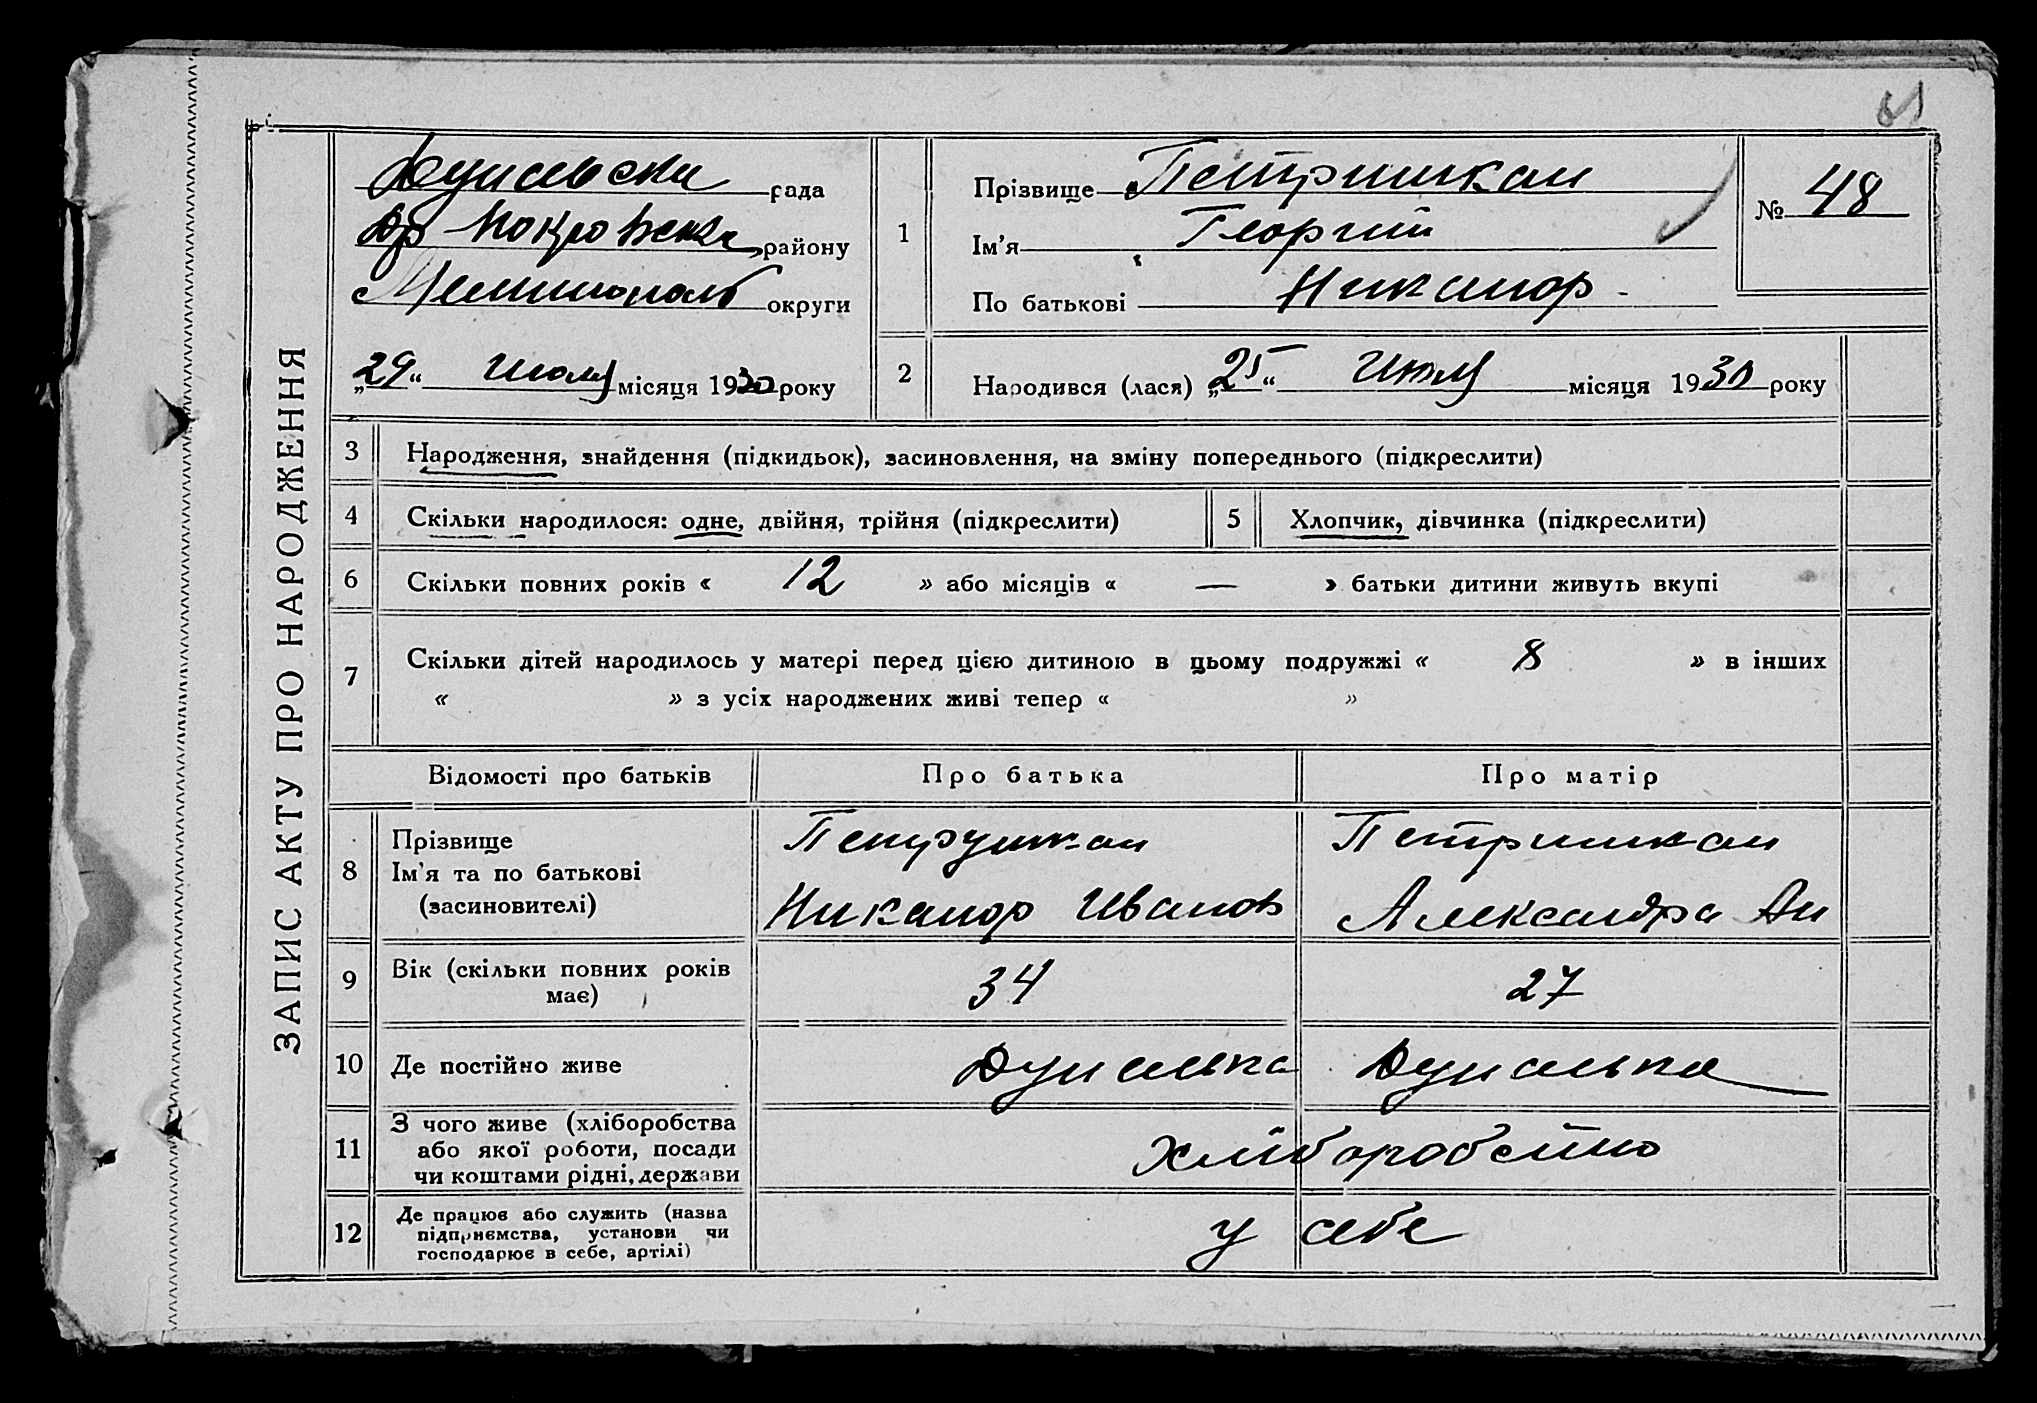 61
ЗАПИС АКТУ ПРО НАРОДЖЕННЯ
Дунаевска рада
Ар Покровска району
Мелитополь округи
„29“ Июля місяця 1930 року
1
Прізвище Петришкан
Ім’я Георгий
По батькові Никанор -
№ 48
2
Народився (лася) „25“ Июля місяця 1930 року
3 Народження, знайдення (підкидьок), засиновлення, на зміну попереднього (підкреслити)
4 Скільки народилося: одне, двійня, трійня (підкреслити) 5 Хлопчик, дівчинка (підкреслити)
6 Скільки повних років « 12 » або місяців « — » батьки дитини живуть вкупі
7 Скільки дітей народилось у матері перед цією дитиною в цьому подружжі « 8 » в інших
« » з усіх народжених живі тепер « »
Відомості про батьків Про батька Про матір
8
Прізвище
Ім’я та по батькові
(засиновителі)
Петрушкан
Никанор Иванов
Петришкан
Александра Ан
9
Вік (скільки повних років
має)
34 27
10 Де постійно живе
Дунаевка Дунаевка
11
З чого живе (хліборобства
або якої роботи, посади
чи коштами рідні, держави
Хліборобство
12
Де працює або служить (назва
підприємства, установи чи
господарює в себе, артілі)
у себе